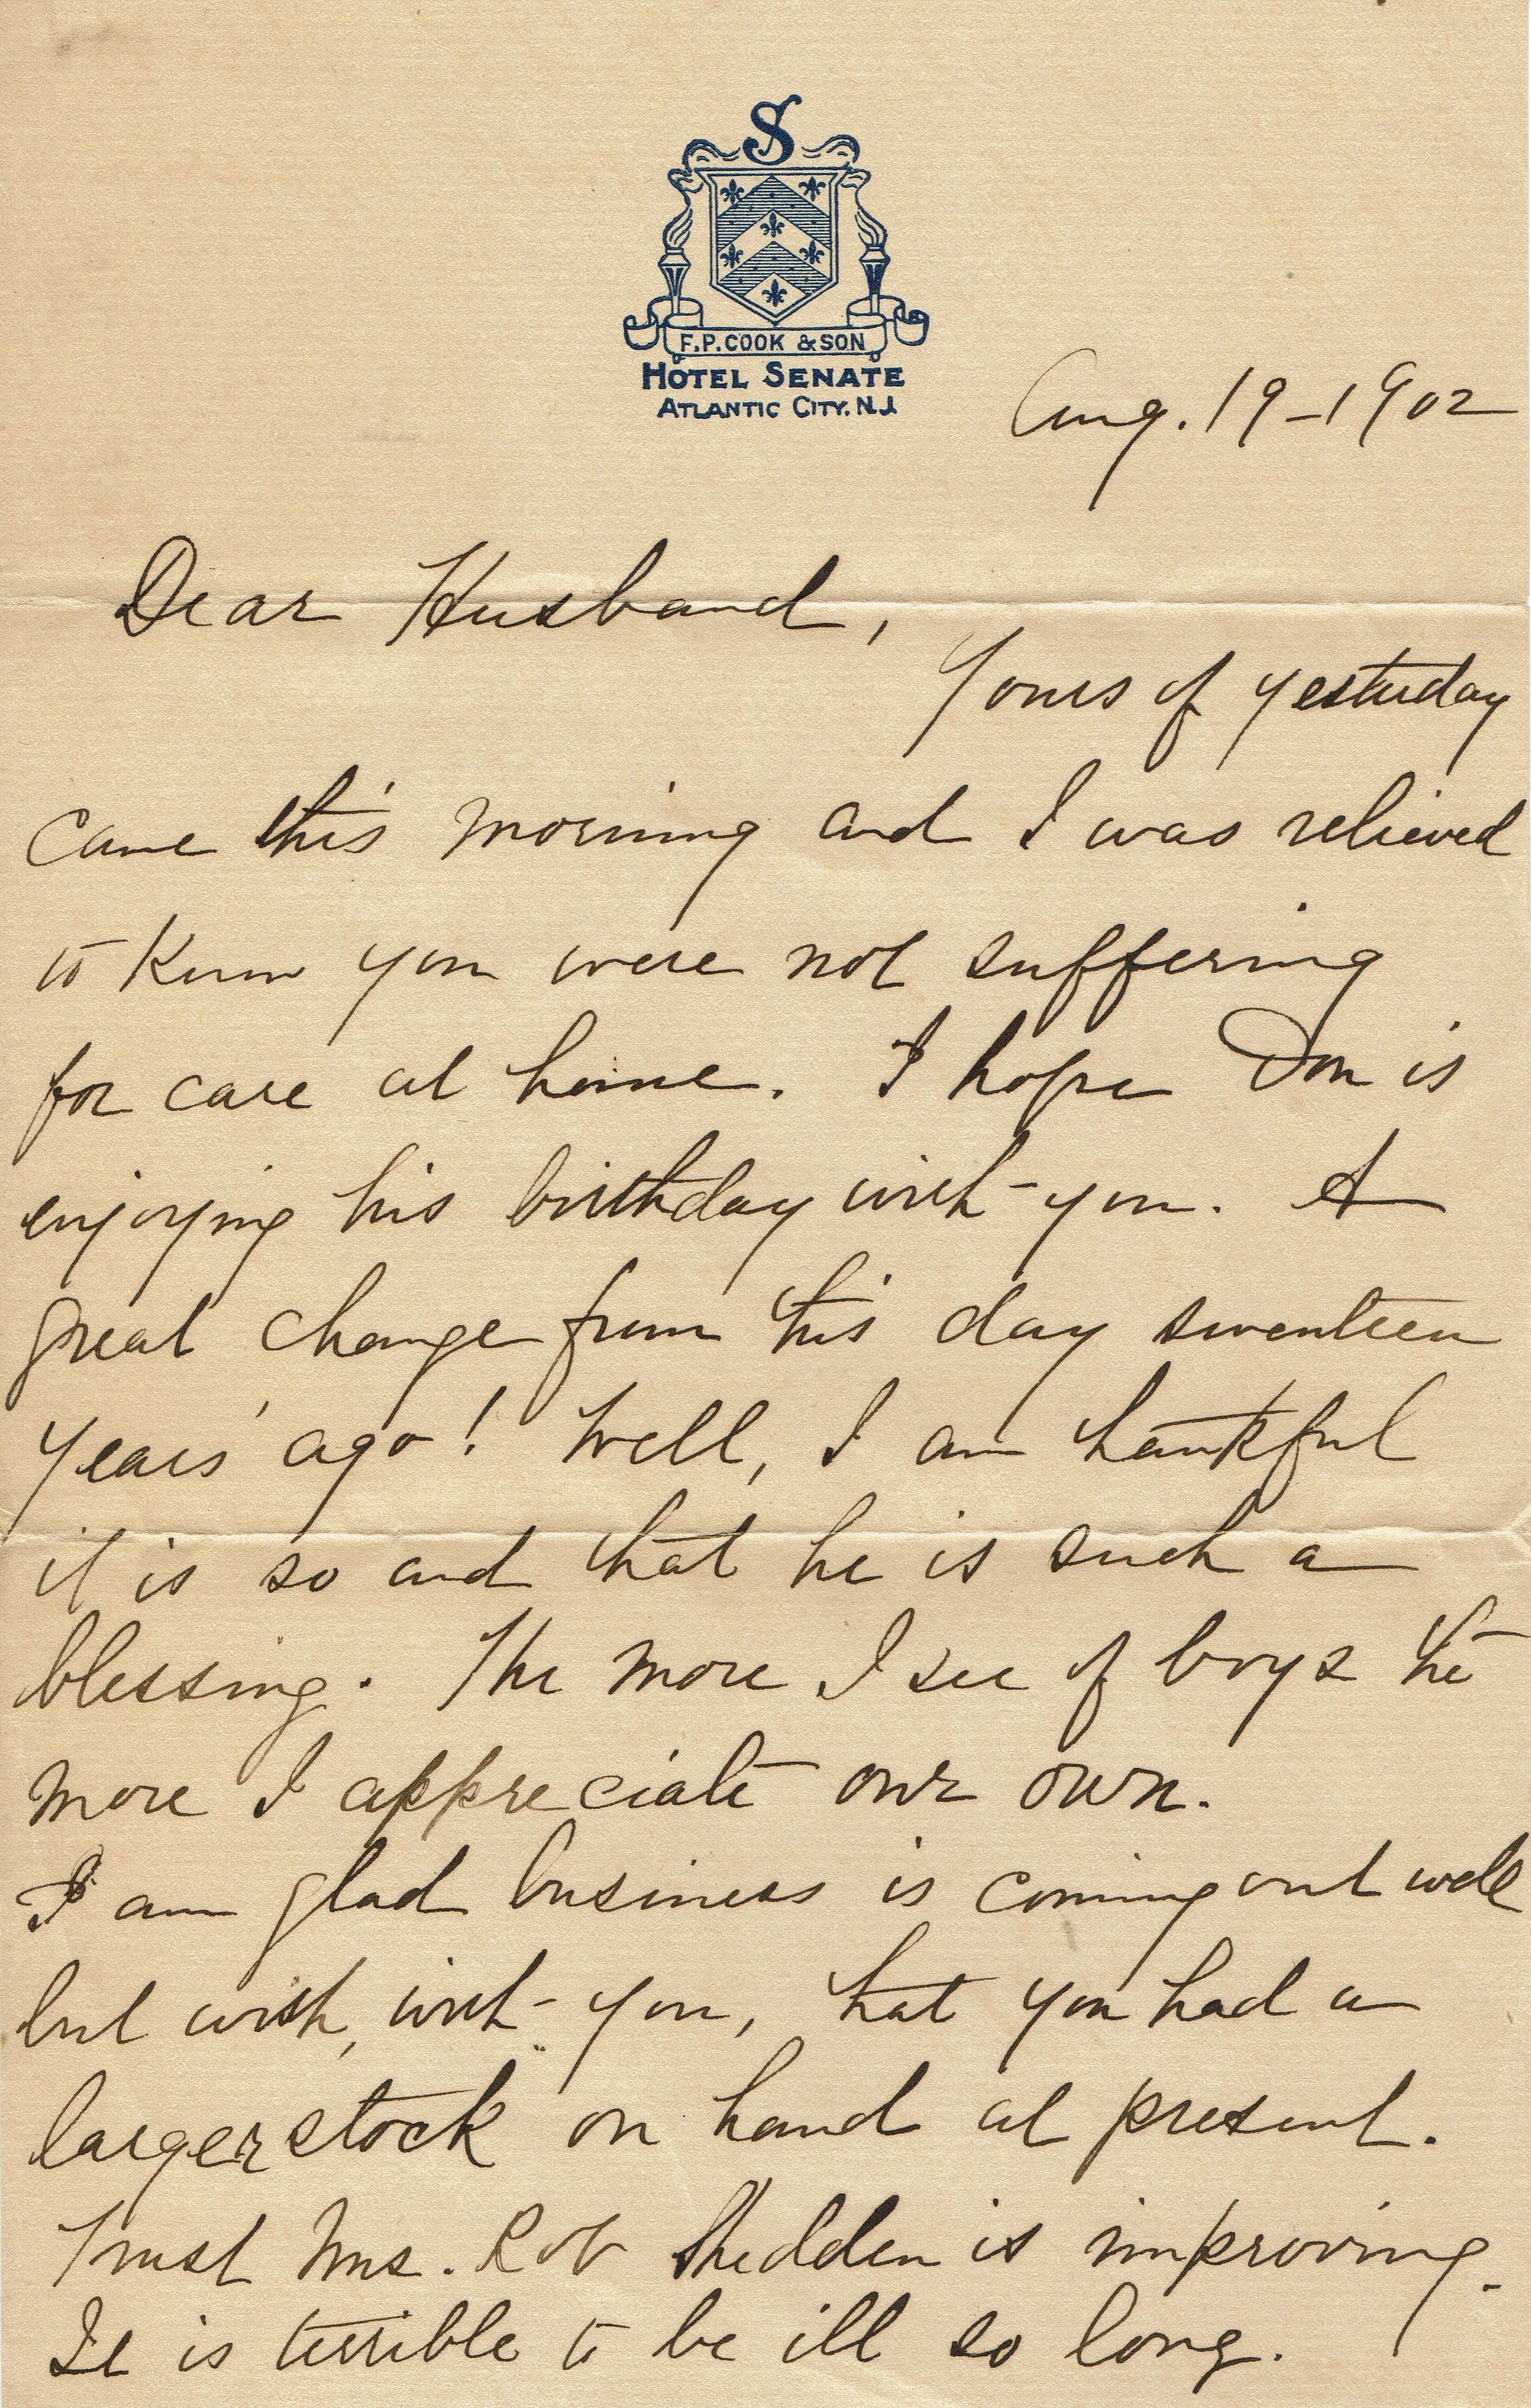 S
F.P. COOK & SON
HOTEL SENATE
ATLANTIC CITY. N.J.
Aug. 19-1902
Dear Husband,
Yours of yesterday
came this morning and I was relieved
to know you were not suffering
for care at home. I hope Don is
enjoying his birthday with you. A
great change from this day seventeen
years ago! Well, I am thankful
it is so and that he is such a
blessing. The more I see of boys the
more I appreciate our own.
I am glad business is coming out well
but wish, with you, that you had a
larger stock on hand at present.
Trust Mrs. Rob Shedden is improving.
It is terrible to be ill so long.